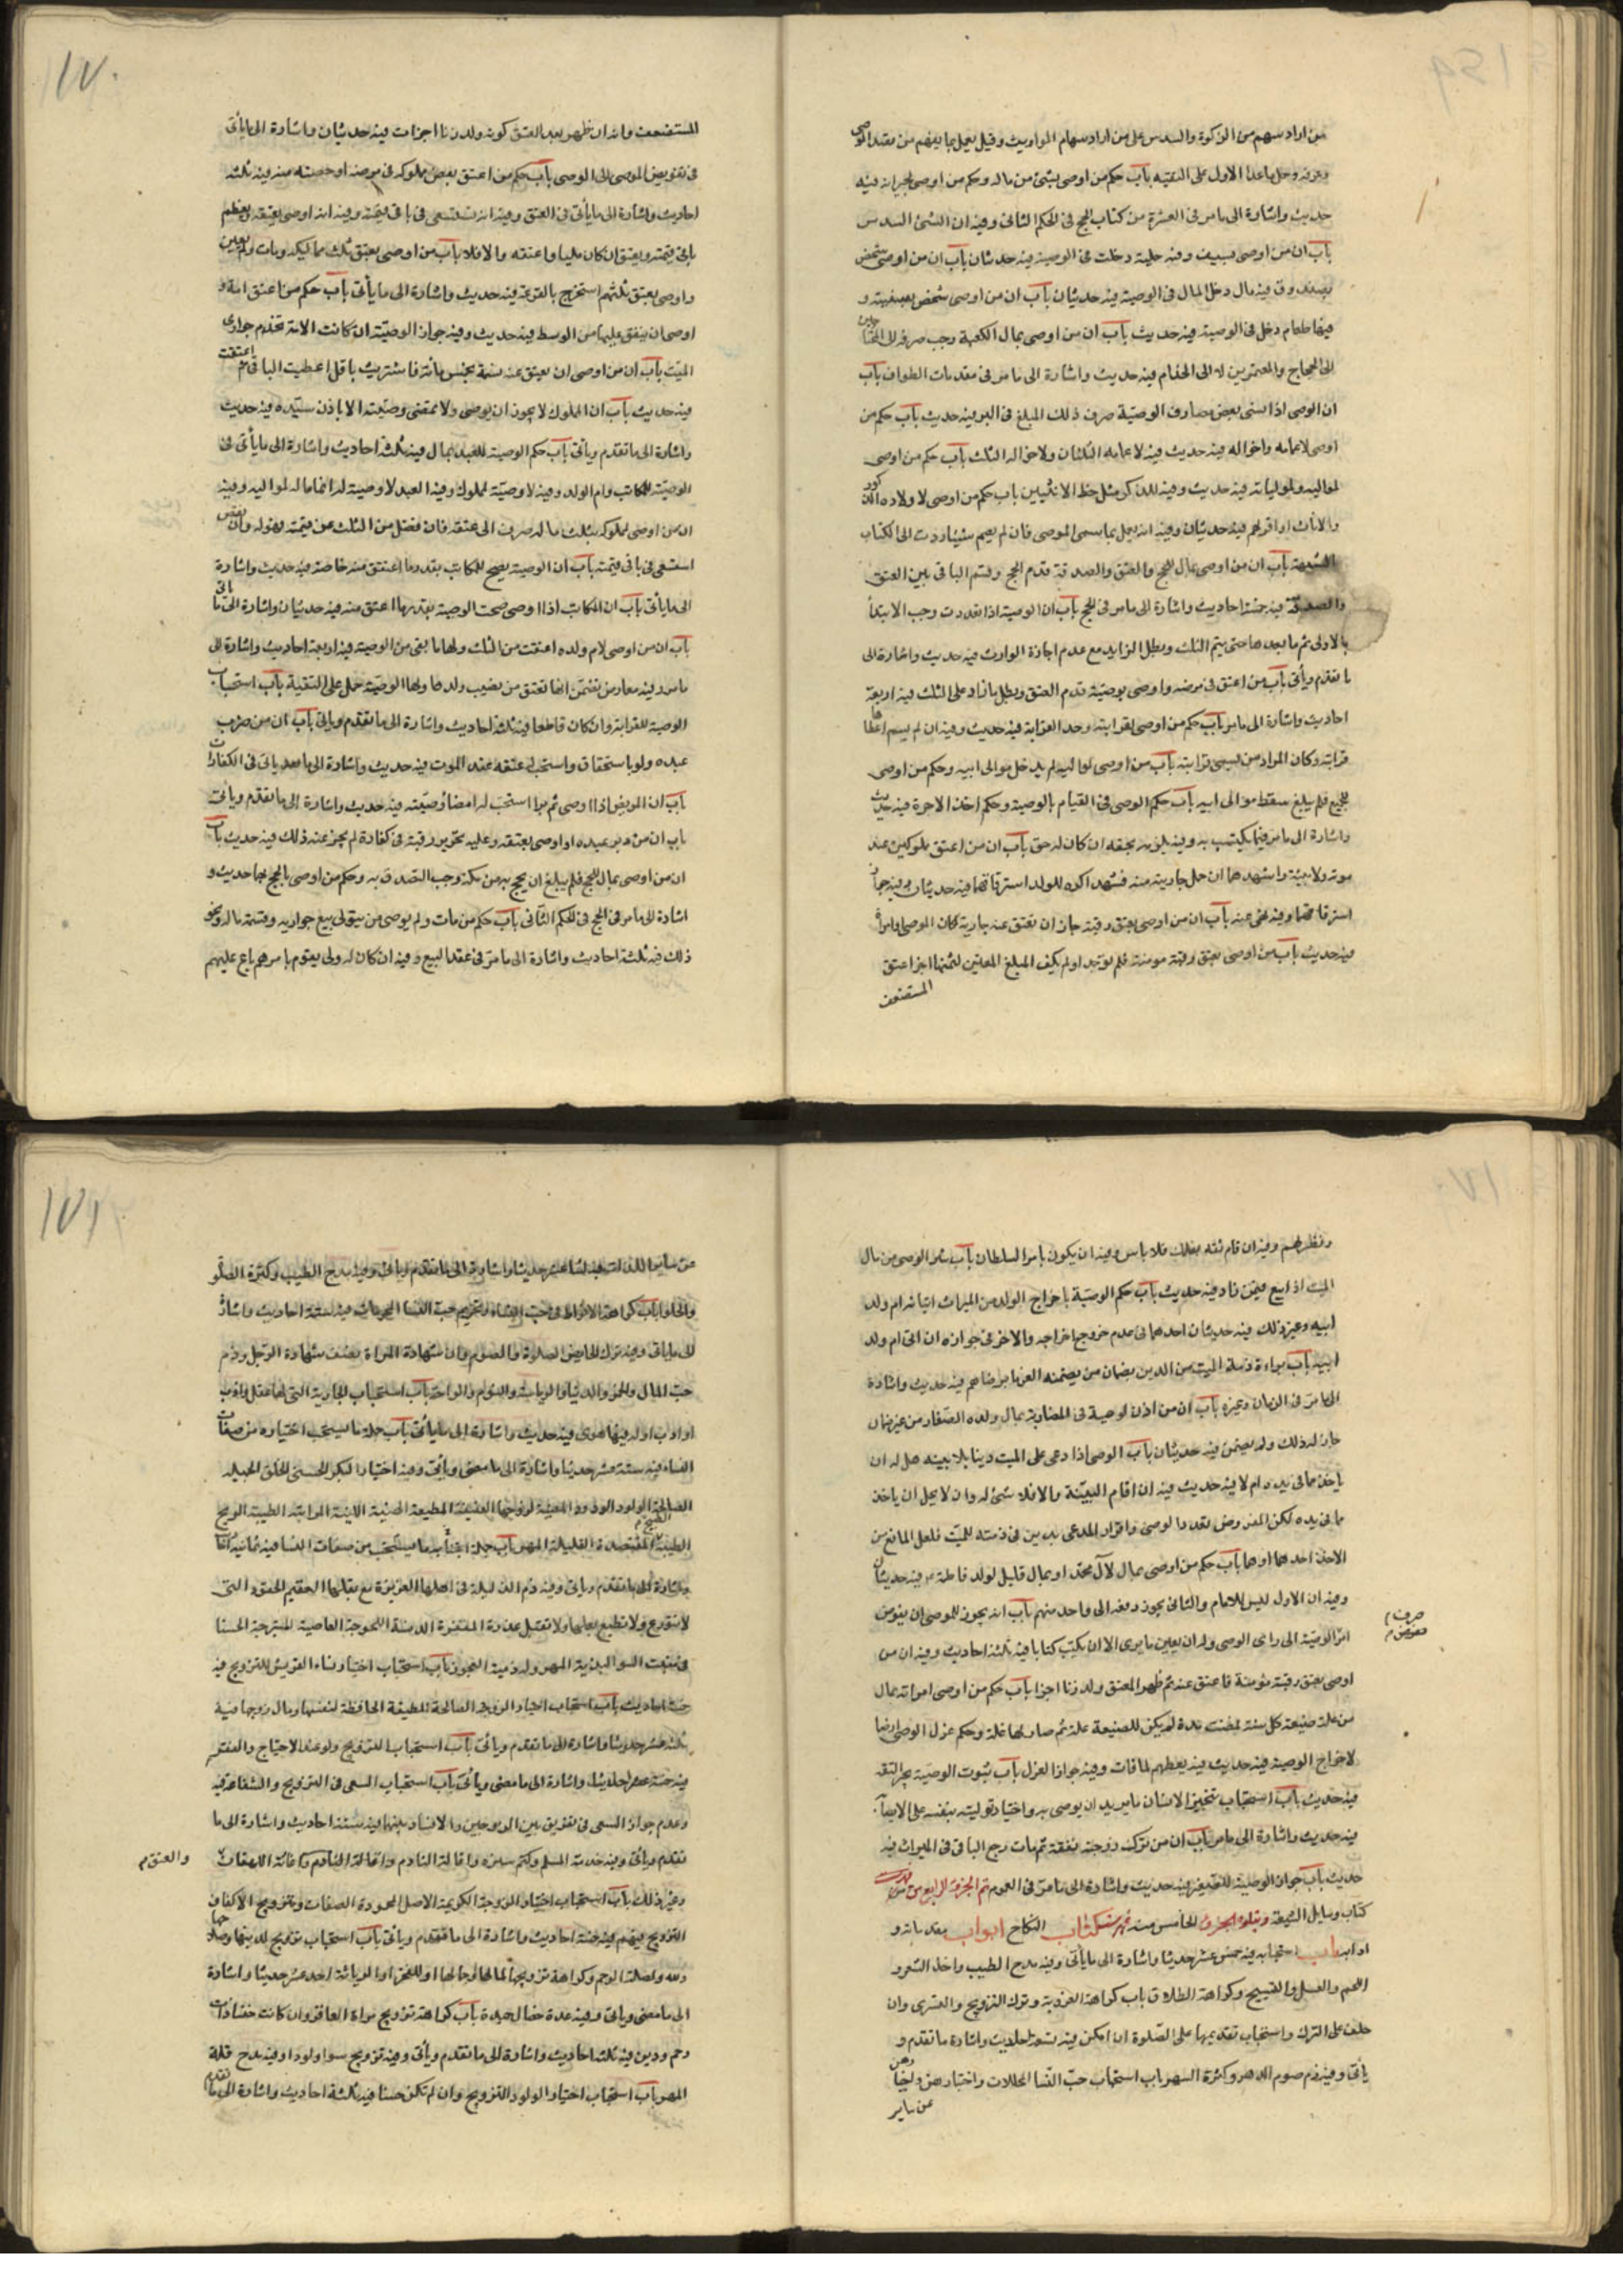 من اراد سهم من الزكوة والسدس على من اراد سهام المواريث وقيل يعمل بما يفهم من مقصد الموصى
وعرفه وحمل ماعدا الاول على التقية باب حكم من اوصى بشئ من ماله وحكم من اوصى لجيرانه فيه
حديث واشارة الى ما مر فى العشرة من كتاب الحج فى الحكم الثانى وفيه ان الشئ السدس
باب ان من اوصى بسيف وفيه حلية دخلت فى الوصية فيه حديثان باب ان من اوصى لشخص
بصندوق فيه مال دخل المال فى الوصية فيه حديثان باب ان من اوصى لشخص بسفينة و
فيها طعام دخل فى الوصية فيه حديث باب ان من اوصى بمال للكعبة وجب صرفه الى المحتاجين
الى الحجاج والمعتمرين لا الى الخدام فيه حديث واشارة الى ما مر فى مقدمات الطواف باب
ان الوصى اذا نسى بعض مصارف الوصية صرف ذلك المبلغ فى البر فيه حديث باب حكم من
اوصى لاعمامه واخواله فيه حديث فيه لاعمامه الثلثان ولاخواله الثلث باب حكم من اوصى
لمواليه ولمولياته فيه حديث وفيه للذكر مثل حظ الانثيين باب حكم من اوصى لاولاده الذكور
والاناث او اقر لهم فيه حديثان وفيه انه يعمل بما سمى الموصى فان لم يسم شيئا ردت الى الكتاب
والسنة باب ان من اوصى بمال للحج والعتق والصدقة قدم الحج وقسم الباقى بين العتق
والصدقة فيه خمسة احاديث واشارة الى ما مر فى الحج باب ان الوصية اذا تعددت وجب الابتدأ
بالاولى ثم ما بعدها حتى يتم الثلث وبطل الزايد مع عدم اجازة الوارث فيه حديث واشارة الى
ما تقدم ويأتى باب من اعتق فى مرضه واوصى بوصية قدم العتق وبطل ما زاد على الثلث فيه اربعة
احاديث واشارة الى ما مر باب حكم من اوصى لقرابته وحد القرابة فيه حديث وفيه ان لم يسم اعطاها
قرابته وكان المراد من ليس قرابته باب من اوصى لمواليه لم يدخل موالى ابيه وحكم من اوصى
للجميع فلم يبلغ سقط موالى ابيه باب حكم الوصى فى القيام بالوصية وحكم اخذ الاجرة فيه حديث
واشارة الى ما مر فيما يكتسب به وفيه يلزمه بحقه ان كان له حق باب ان من اعتق مملوكين عند
موته ولا بينة واشهدهما ان حمل جاريته منه فشهدا كره للولد استرقاقهما فيه حديثان وفيه جواز
استرقاقهما وفيه نهى عنه باب ان من اوصى بعتق رقبة جاز ان تعتق عنه جارية كان الموصى او امرأة
فيه حديث باب من اوصى بعتق رقبة مومنة فلم توجد او لم يكف المبلغ المعين لثمنها اجزا عتق
المستضعف
١٧٠
المستضعف وانه ان ظهر بعد العتق كونه ولد زنا اجزات فيه حديثان واشارة الى ما يأتى
فى تفويض الموصى الى الوصى باب حكم من اعتق بعض مملوكه فى مرضه او حصته منه فيه ثلثة
احاديث واشارة الى ما يأتى فى العتق وفيه انه يستسعى فى باقى قيمته وفيه انه اوصى بعتقه
باقى قيمته ويعتق ان كان مليا واعتقه والا فلا باب من اوصى بعتق ثلث مماليكه ومات ولم يعين
واوصى بعتق ثلثهم استخرج بالقرعة فيه حديث واشارة الى ما يأتى باب حكم من اعتق امة و
اوصى ان ينفق عليها من الوسط فيه حديث وفيه جواز الوصية ان كانت الامة تخدم جوارى
الميت باب ان من اوصى ان يعتق عنه نسمة بخمس مأة فاشتريت باقل اعطيت الباقى ثم اعتقت
فيه حديث باب ان المملوك لا يجوز ان يوصى ولا تمضى وصيته الا باذن سيده فيه حديث
واشارة الى ما تقدم ويأتى باب حكم الوصية للعبد بمال فيه ثلثة احاديث واشارة الى ما يأتى فى
الوصية للمكاتب وام الولد وفيه لا وصية لمملوك وفيه العبد لا وصية له انما ماله لمواليه وفيه
ان من اوصى لمملوكه بثلث ماله صرف الى عتقه فان فضل من الثلث عن قيمته فهو له وان نقص
استسعى فى باقى قيمته باب ان الوصية يصح للمكاتب بقدر ما اعتق منه خاصة فيه حديث واشارة
الى ما يأتى باب ان المكاتب اذا اوصى صحت الوصية بقدر ما اعتق منه فيه حديثان واشارة الى ما ياتى
باب ان من اوصى لام ولده اعتقت من الثلث ولها ما بقى من الوصية فيه اربعة احاديث واشارة الى
ما مر وفيه معارض تضمن انها تعتق من نصيب ولدها ولها الوصية حمل على التقية باب استحباب
الوصية للقرابة وان كان قاطعا فيه ثلثة احاديث واشارة الى ما تقدم وياتى باب ان من ضرب
عبده ولو باستحقاق واستحب له عتقه عند الموت فيه حديث واشارة الى ما بعد ياتى فى الكفارات
باب ان المريض اذا اوصى ثم برا استحب له امضاء وصيته فيه حديث واشارة الى ما تقدم ويأتى
باب ان من دبر عبيده او اوصى بعتقه وعليه تحرير رقبة فى كفارة لم يجز عنه ذلك فيه حديث باب
ان من اوصى بمال للحج فلم يبلغ ان يحج به من مكة وجب التصدق به وحكم من اوصى بالحج بها حديث و
اشارة الى ما مر فى الحج فى الحكم الثانى باب حكم من مات ولم يوصى من يتولى بيع جواريه وقسمة ماله ونحو
ذلك فيه ثلثة احاديث واشارة الى ما مر فى عقد البيع وفيه ان كان له ولى يقوم بامرهم باع عليهم
ونظر لهم وفيه ان قام ثقة بذلك فلا باس وفيه ان يكون بامر السلطان باب شرا الوصى من مال
الميت اذا بيع فيمن زاد فيه حديث باب حكم الوصية باخراج الولد من الميراث اتيانه ام ولد
ابيه وغير ذلك فيه حديثان احدهما فى عدم خروج اخراجه والاخر فى جوازه ان اتى ام ولد
ابيه باب براءة ذمة الميت من الدين بضمان من يضمنه الغرما برضاهم فيه حديث واشارة
الى ما مر فى الضمان وغيره باب ان من اذن لوصيه فى المضاربة بمال ولده الصغار من غير ضمان
جاز له ذلك ولم يضمن فيه حديثان باب الوصى اذا ادعى على الميت دينا بلا بينة هل له ان
ياخذ مما فى يده ام لا فيه حديث فيه ان اقام البينة والا فلا شئ له وان لا يحل ان ياخذ
ما فى يده لكن المفروض تعدد الوصى واقرار المدعى بدين فى ذمته للميت فلعل المانع من
الاخذ احدهما اوهما باب حكم من اوصى بمال لآل محمد او بمال قليل لولد فاطمة فيه حديثان
وفيه ان الاول ليس للامام والثانى يجوز دفعه الى واحد منهم باب انه يجوز للموصى ان يفوض
صرف
مفوض
امر الوصية الى راى الوصى وله ان يعين ما يرى الا ان يكتب كتابا فيه ثلثة احاديث وفيه ان من
اوصى بعتق رقبة مؤمنة فاعتق عنه ثم ظهر المعتق ولد زنا اجزا باب حكم من اوصى امراته بمال
من غلة ضيعة كل سنة فمضت مدة لم يكن للضيعة غلة ثم صار لها غلة وحكم عزل الوصى ارضا
لاخراج الوصية فيه حديث فيه يعطهم لما فات وفيه جواز العزل باب ثبوت الوصية بخبر الثقة
فيه حديث باب استحباب تنجيز الانسان ما يريد ان يوصى به واختيار توليته بنفسه على الايصاء
فيه حديث واشارة الى ما مر باب ان من ترك لزوجته نفقة ثم مات رجع الباقى فى الميراث فيه
حديث باب جواز الوصية للضعيف فيه حديث واشارة الى ما مر فى العموم تم الجزء الرابع من فهرست
كتاب وسايل الشيعة ويتلوه الجزء الخامس منه فهرست كتاب النكاح ابواب مقدماته و
ادابه باب استحبابه فيه خمس عشر حديثا واشارة الى ما يأتى وفيه مدح الطيب واخذ الشعر و
النعم والغسل والتقبيح وكراهة الطلاق باب كراهة العزوبة وترك التزويج والتسرى وان
حلف على الترك واستحباب تقديمها على الصلوة ان امكن فيه تسعة احاديث واشارة ما تقدم و
ياتى وفيه ذم صوم الدهر وكثرة السهر باب استحباب حب النسا المحللات واختيارهن
عن ساير
١٧١
عن ساير اللذات فيه اثنا عشر حديثا واشارة الى ما تقدم وياتى وفيه مدح الطيب وكثرة الصلو
والحلوا باب كراهة الافراط فى حب النساء وتحريم حب النسا المحرمات فيه ستة احاديث واشارة
الى ما ياتى وفيه ترك الحايض الصلوة والصوم وان شهادة المراة نصف شهادة الرجل وذم
حب المال والخمر والدنيا والرياسة والنوم والراحة باب استحباب الجارية التى لها عقل وادب
او ادب او له فيها هوى فيه حديث واشارة الى ما يأتى باب جملة ما يستحب اختياره من صفات
النساء فيه ستة عشر حديثا واشارة الى ما مضى ويأتى وفيه اختيار البكر الحسنى الخلق الجميله
الصالحة الولود الودود المعينة لزوجها العفيفة المطيعة الحصينة اللينة المواتية الطيبة الريح
الطيبة الطبيخ المقتصدة القليلة المهر باب جملة اجتناب ما يستحب من صفات النسا فيه ثمانية احاديث
واشارة الى ما تقدم وياتى وفيه ذم الذليلة فى اهلها العزيزة مع بعلها العقيم الحقود التى
لا تتورع ولا تطيع بعلها ولا تقبل عذره المقفرة الدنسة اللجوجة العاصية المتبرجة الحسنا
فى منبت السوء البذية المهر ولو ذمية العجوز باب استحباب اختيار نساء القريش للتزويج فيه
خمسة احاديث باب استحباب اختيار الزوجة الصالحة المطيعة الحافظة لنفسها ومال زوجها فيه
ثلثة عشر حديثا واشارة الى ما تقدم ويأتى باب استحباب التزويج ولو عند الاحتياج والفقر
فيه خمسة عشر حديثا واشارة الى ما مضى ويأتى باب استحباب السعى فى التزويج والشفاعة فيه
وعدم جواز السعى فى تفريق بين الزوجين والافساد بينهما فيه ستة احاديث واشارة الى ما
تقدم وياتى وفيه خدمة المسلم وكتم سره واقالة النادم واغاثة اللهفان
والعتق
وغير ذلك باب استحباب اختيار الزوجة الكريمة الاصل المحمودة الصفات وتزويج الاكفاء
التزويج فيهم فيه خمسة احاديث واشارة الى ما تقدم وياتى باب استحباب تزويج لدينها وصلاحها
ولله ولصلة الرحم وكراهة تزويجها لمالها وجمالها او للفخر او الرياء فيه احد عشر حديثا واشارة
الى ما مضى وياتى وفيه عدة خصال حميدة باب كراهة تزويج مراة العاقر وان كانت حسناء ذات
رحم ودين فيه ثلثة احاديث واشارة الى ما تقدم ويأتى وفيه تزويج سوا ولودا وفيه مدح قلة
المهر باب استحباب اختيار الولود للتزويج وان لم تكن حسنا فيه ثلثة احاديث واشارة الى ما تقدم